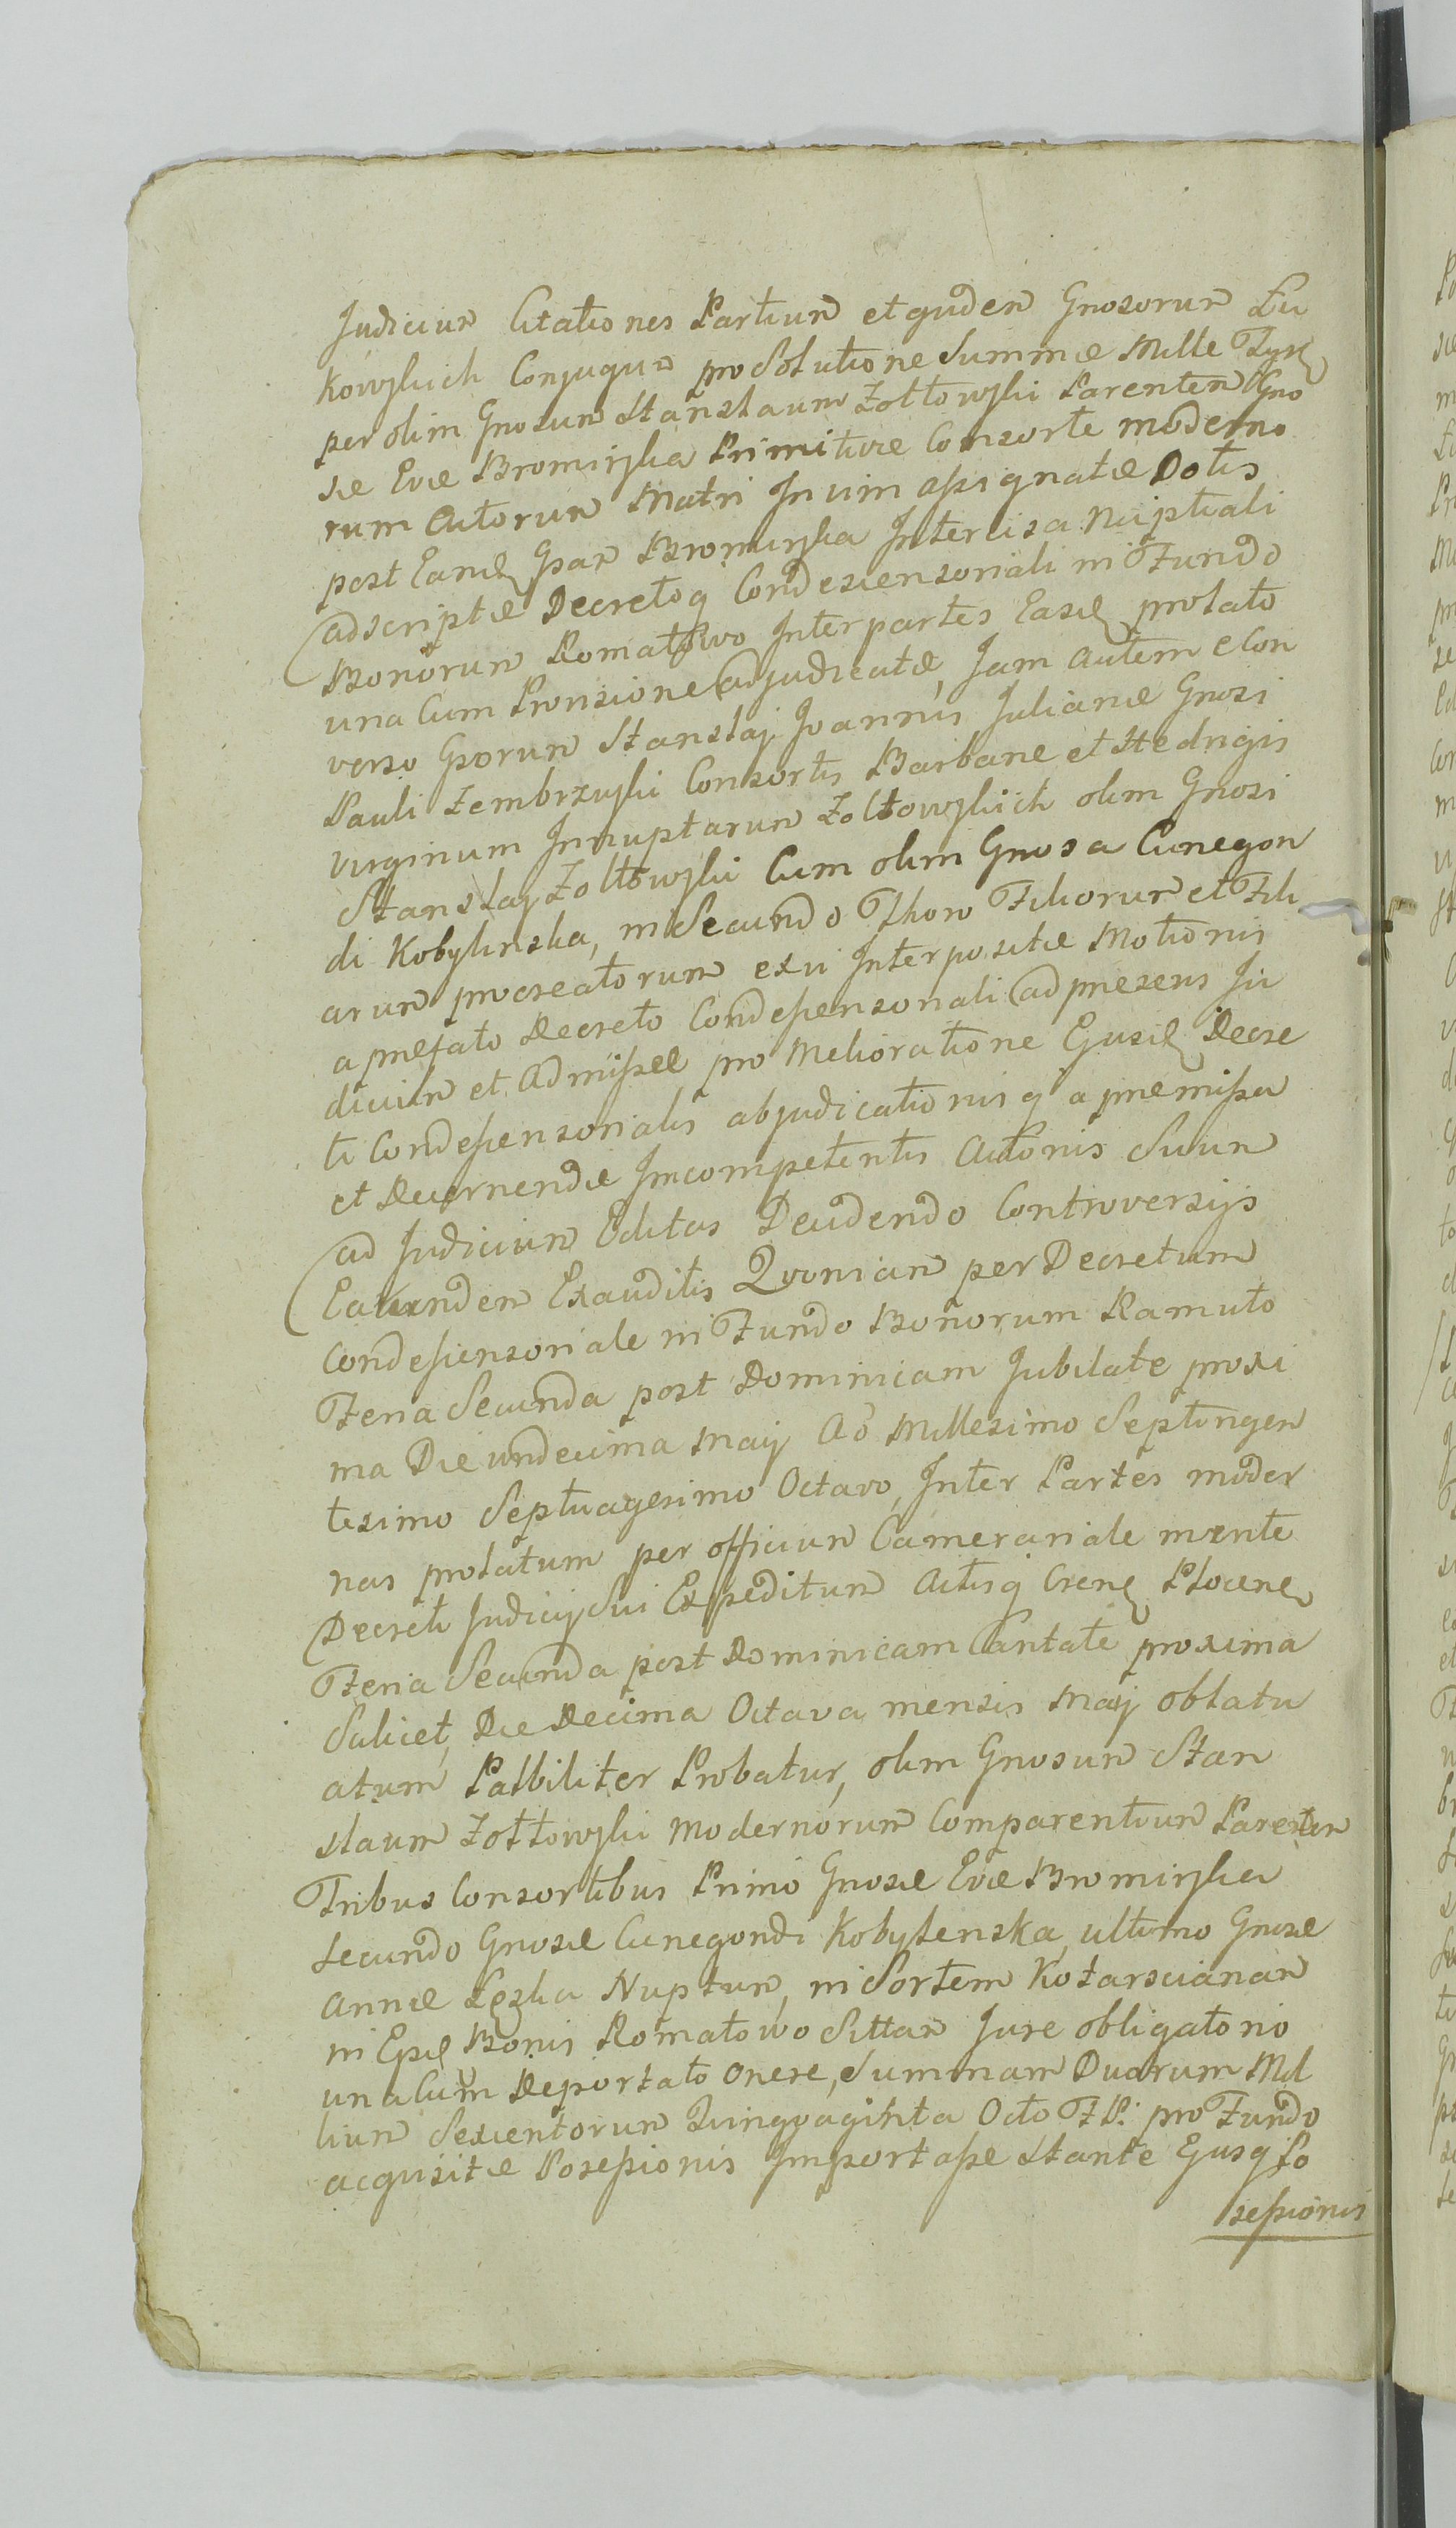 Judicium Citationes Partium et quidem Gnosorum Lu
kowskich Conjugum pro Solutione Summæ Mille Tynf
per olim Gnosum Stanslaum Zołtowski Parentem Gno
sæ Evæ Bromirska Primitivæ Consorte moderno
rum Actorum Matri In vim assignatæ Dotis
post Eand Gsam Bromirska Intercisa Nuptiali
adscriptæ Decretoq Condescensoriali in Fundo
Bonorum Romatowo Inter partes Easd prolato
una Cum Provisione adjudicatæ, Jam autem e Con
verso Gsorum Stanslaj Joannis Julianæ Gnosi
Pauli Zembrzuski Consortis Barbaræ et Hedvigis
Virginum Innuptarum Zołtowskich olim Gnosi
Stanslaj Zołtowski Cum olim Gnosa Cunegon
di Kobylinska, in Secundo Thoro Filiorum et Fili
arum procreatorum ex vi Interpositæ Motionis
a præfato Decreto Condessensoriali ad præsens Ju
dicium et Admissæ pro Melioratione Ejusd Decre
ti Condessensorialis abjudicationis q a præmissa
et Decernendæ Imcompetentis Actoris Suum
ad Judicium Editas Decidendo Controversijs
Earundem Exauditis Quoniam per Decretum
Condessensoriale in Fundo Bonorum Ramuto
Feria Secunda post Dominicam Jubilate proxi
ma Die undecima Maij Ao Millesimo Septingen
tesimo Septuagesimo Octavo, Inter Partes moder
nas prolatum per officium Camerariale mente
Decreti Judicij Sui Expeditum Actisq Cren Plocen
Feria Secunda post Dominicam Cantate proxima
Scilicet, Die Decima Octava mensis Maij oblatu
atum Palbiliter Probatur, olim Gnosum Stan
slaum Zołtowski Modernorum Comparentium Parentem
Tribus Consortibus Primo Gnosæ Evæ Bromirska
secundo Gnosæ Cunegondi Kobylenska, ultimo Gnosæ
Annæ Łęska Nuptum, in Sortem Kotarscianam
in Eisd Bonis Romatowo Sittam Jure obligatorio
una Cum Deportato Onere, Summam Duorum Mil
lium Sexcentorum Quinquaginta Octo FP. pro Fundo
acquisitæ Posessionis Importasse Stante Ejusq Po
sessionis